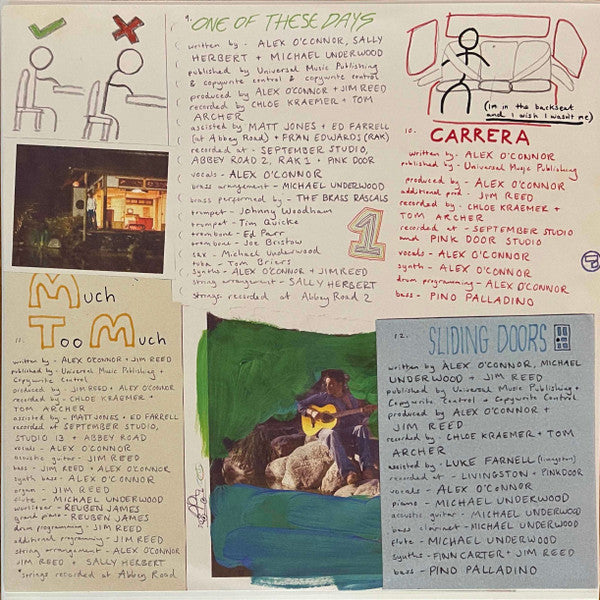 9. ONE OF THESE DAYS
written by - ALEX O'CONNOR, SALLY
HERBERT + MICHAEL UNDERWOOD
published by Universal Music Publishing
& copywrite control & copywrite control
produced by ALEX O'CONNOR + JIM REED
recorded by CHLOE KRAEMER + TOM
ARCHER
assisted by MATT JONES + ED FARRELL
(at Abbey Road) + FRAN EDWARDS (RAK)
recorded at - SEPTEMBER STUDIO,
ABBEY ROAD 2, RAK 1 + PINK DOOR
vocals - ALEX O'CONNOR
brass arrangement - MICHAEL UNDERWOOD
brass performed by - THE BRASS RASCALS
trumpet - Johnny Woodham
trumpet - Tim Quicke
trombone - Ed Parr
trombone - Joe Bristow
sax - Michael Underwood
tuba - Tom Briers
synths - ALEX O'CONNOR + JIM REED
string arrangement - SALLY HERBERT
strings recorded at Abbey Road 2
1
(im in the backseat
and I wish I wasnt me)
10. CARRERA
written by - ALEX O'CONNOR
published by - Universal Music Publishing
produced by - ALEX O'CONNOR
additional prod - JIM REED
recorded by - CHLOE KRAEMER +
TOM ARCHER
recorded at - SEPTEMBER STUDIO
and PINK DOOR STUDIO
vocals - ALEX O'CONNOR
synth - ALEX O'CONNOR
drum programming - ALEX O'CONNOR
bass - PINO PALLADINO
Much
11. Too Much
written by - ALEX O'CONNOR + JIM REED
published by - Universal Music Publishing +
Copywrite Control
produced by - JIM REED + ALEX O'CONNOR
recorded by - CHLOE KRAEMER +
TOM ARCHER
assisted by - MATT JONES + ED FARRELL
recorded at SEPTEMBER STUDIO,
STUDIO 13 + ABBEY ROAD
vocals - ALEX O'CONNOR
acoustic guitar - JIM REED
bass - JIM REED + ALEX O'CONNOR
synth bass - ALEX O'CONNOR
organ - JIM REED
flute - MICHAEL UNDERWOOD
wurlitzer - REUBEN JAMES
grand piano - REUBEN JAMES
drum programming - JIM REED
additional programming - JIM REED
string arrangement - ALEX O'CONNOR
JIM REED + SALLY HERBERT
*strings recorded at Abbey Road
12. SLIDING DOORS
written by ALEX O'CONNOR, MICHAEL
UNDERWOOD + JIM REED
published by Universal Music Publishing +
Copywrite Control + Copywrite Control
produced by ALEX O'CONNOR +
JIM REED
recorded by - CHLOE KRAEMER + TOM
ARCHER
assisted by - LUKE FARNELL (livingston)
recorded at - LIVINGSTON + PINKDOOR
vocals - ALEX O'CONNOR
piano - MICHAEL UNDERWOOD
acoustic guitar - MICHAEL UNDERWOOD
bass clarinet - MICHAEL UNDERWOOD
flute - MICHAEL UNDERWOOD
synths - FINN CARTER + JIM REED
bass - PINO PALLADINO